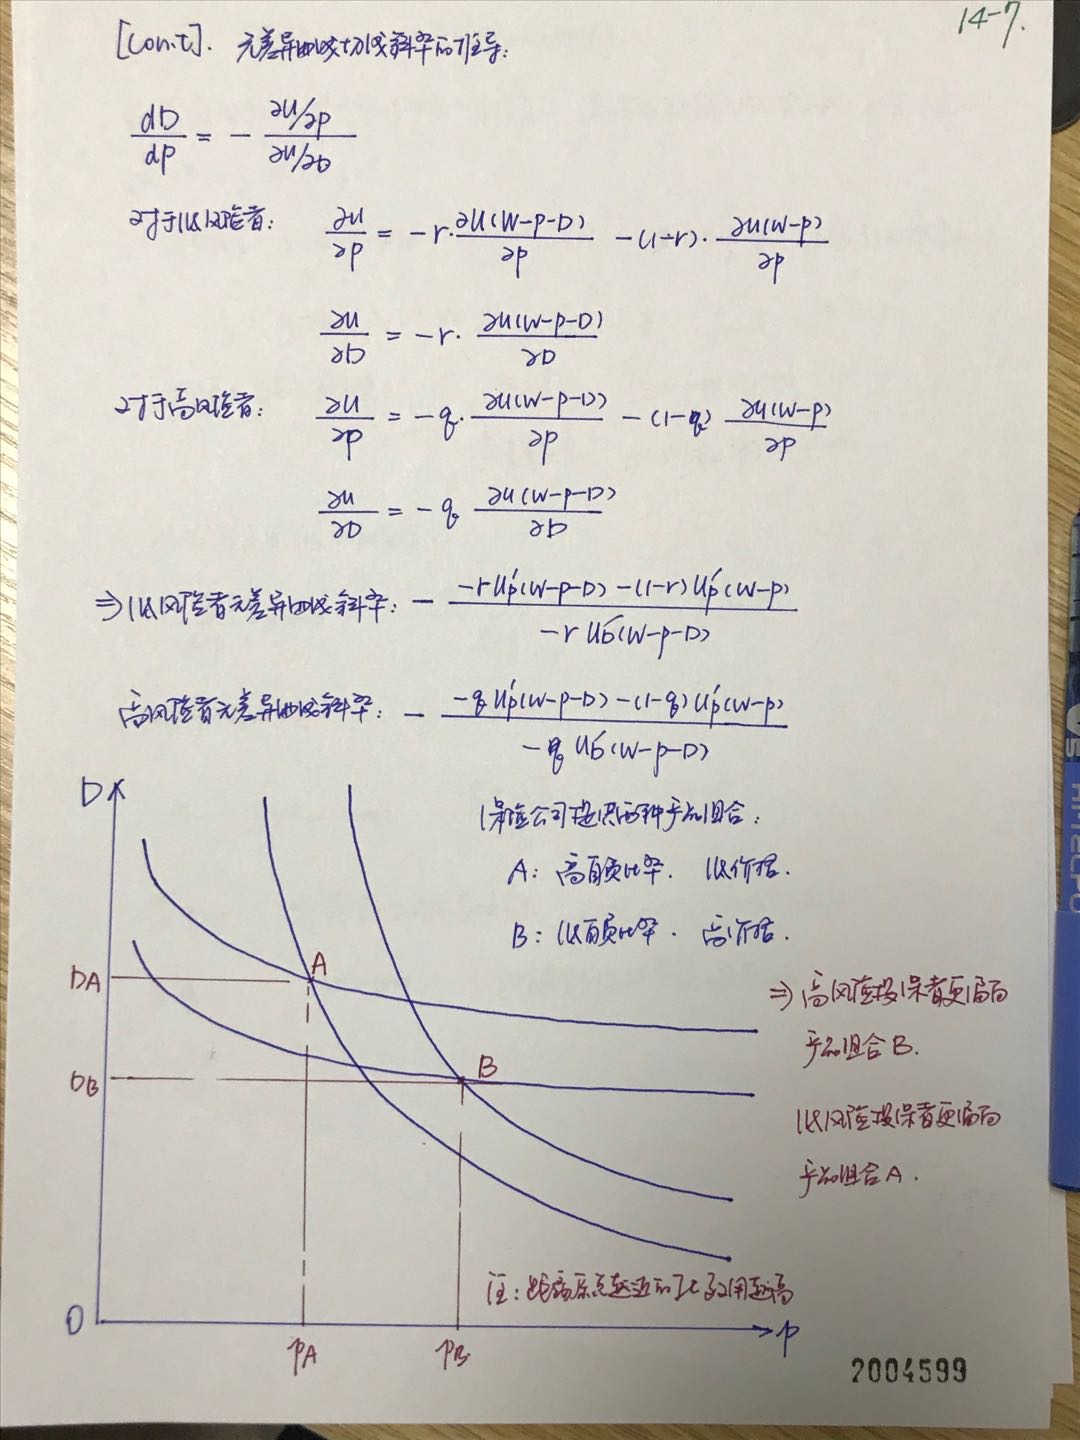 14-7.
[Cont.]. 无差异曲线切线斜率的推导:
dD/dp = - (∂U/∂p)/(∂U/∂D)
对于低风险者: ∂U/∂p = -r·∂U(W-p-D)/∂p -(1-r)·∂U(W-p)/∂p
∂U/∂D = -r·∂U(W-p-D)/∂D
对于高风险者: ∂U/∂p = -q·∂U(W-p-D)/∂p -(1-q) ∂U(W-p)/∂p
∂U/∂D = -q ∂U(W-p-D)/∂D
⇒低风险者无差异曲线斜率: - (-rUp'(W-p-D) -(1-r)Up'(W-p))/(-rUD'(W-p-D))
高风险者无差异曲线斜率: - (-qUp'(W-p-D) -(1-q)Up'(W-p))/(-qUD'(W-p-D))
保险公司提供两种产品组合:
A: 高自负比率. 低价格.
B: 低自负比率. 高价格.
⇒高风险投保者更偏向
产品组合B.
低风险投保者更偏向
产品组合A.
D
A
DA
B
DB
注: 距离原点越近的IC效用越高
O
pA
pB
p
2004599